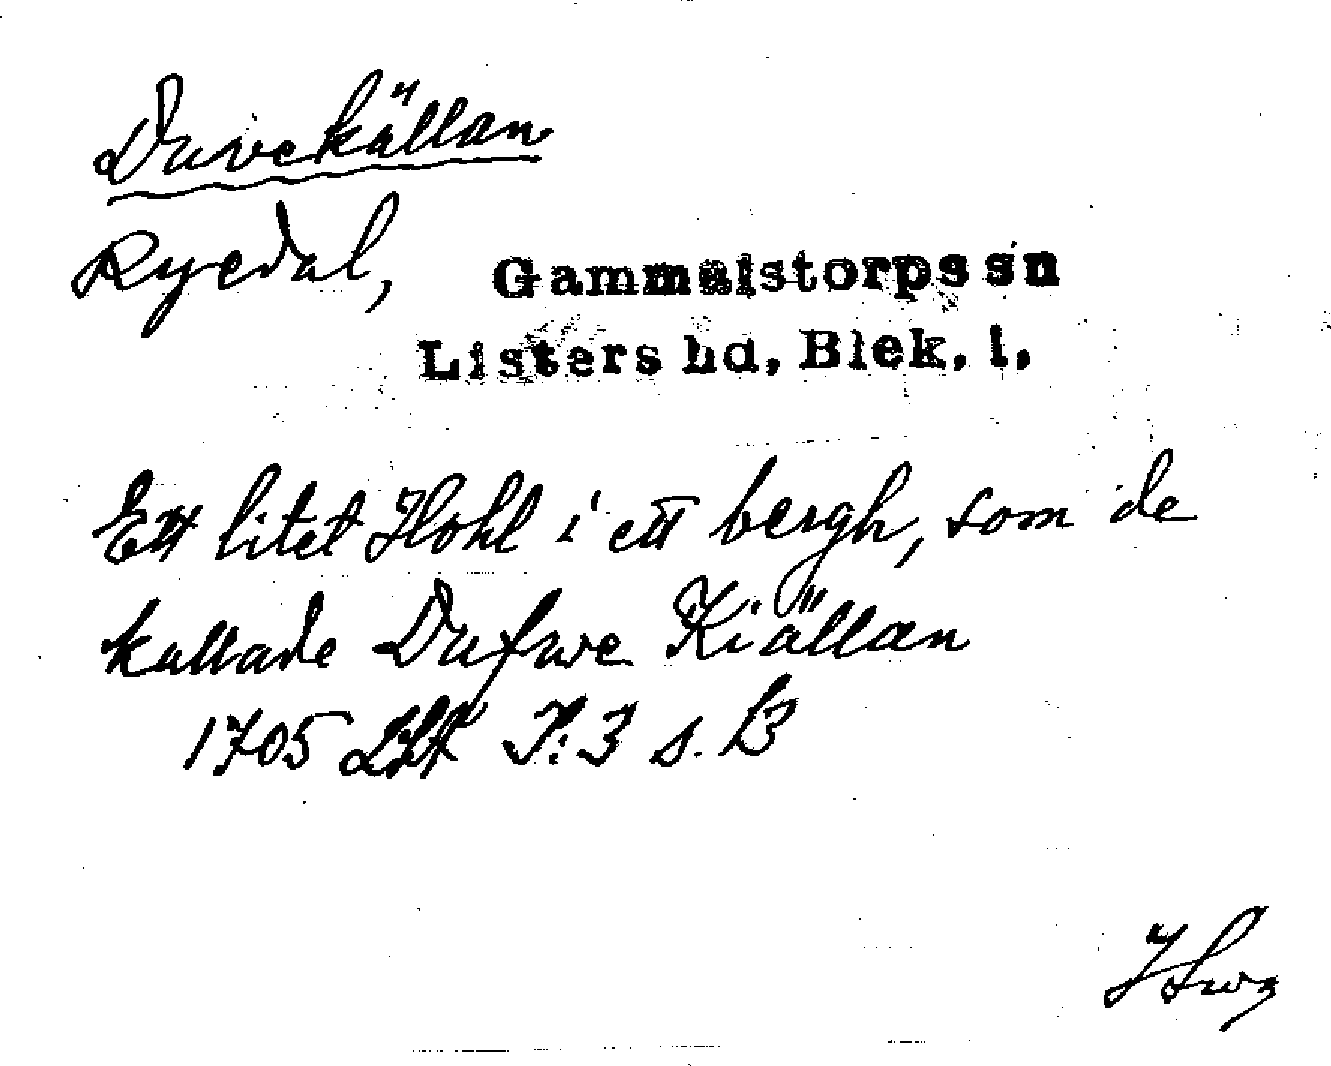 Duvekällan
Ryedal, Gammalstorps sn
Listers hd, Blek. l.
Ett litet Hohl i ett bergh, som de
kallade Dufwe Kiällan
1705 P: 3 s. 13